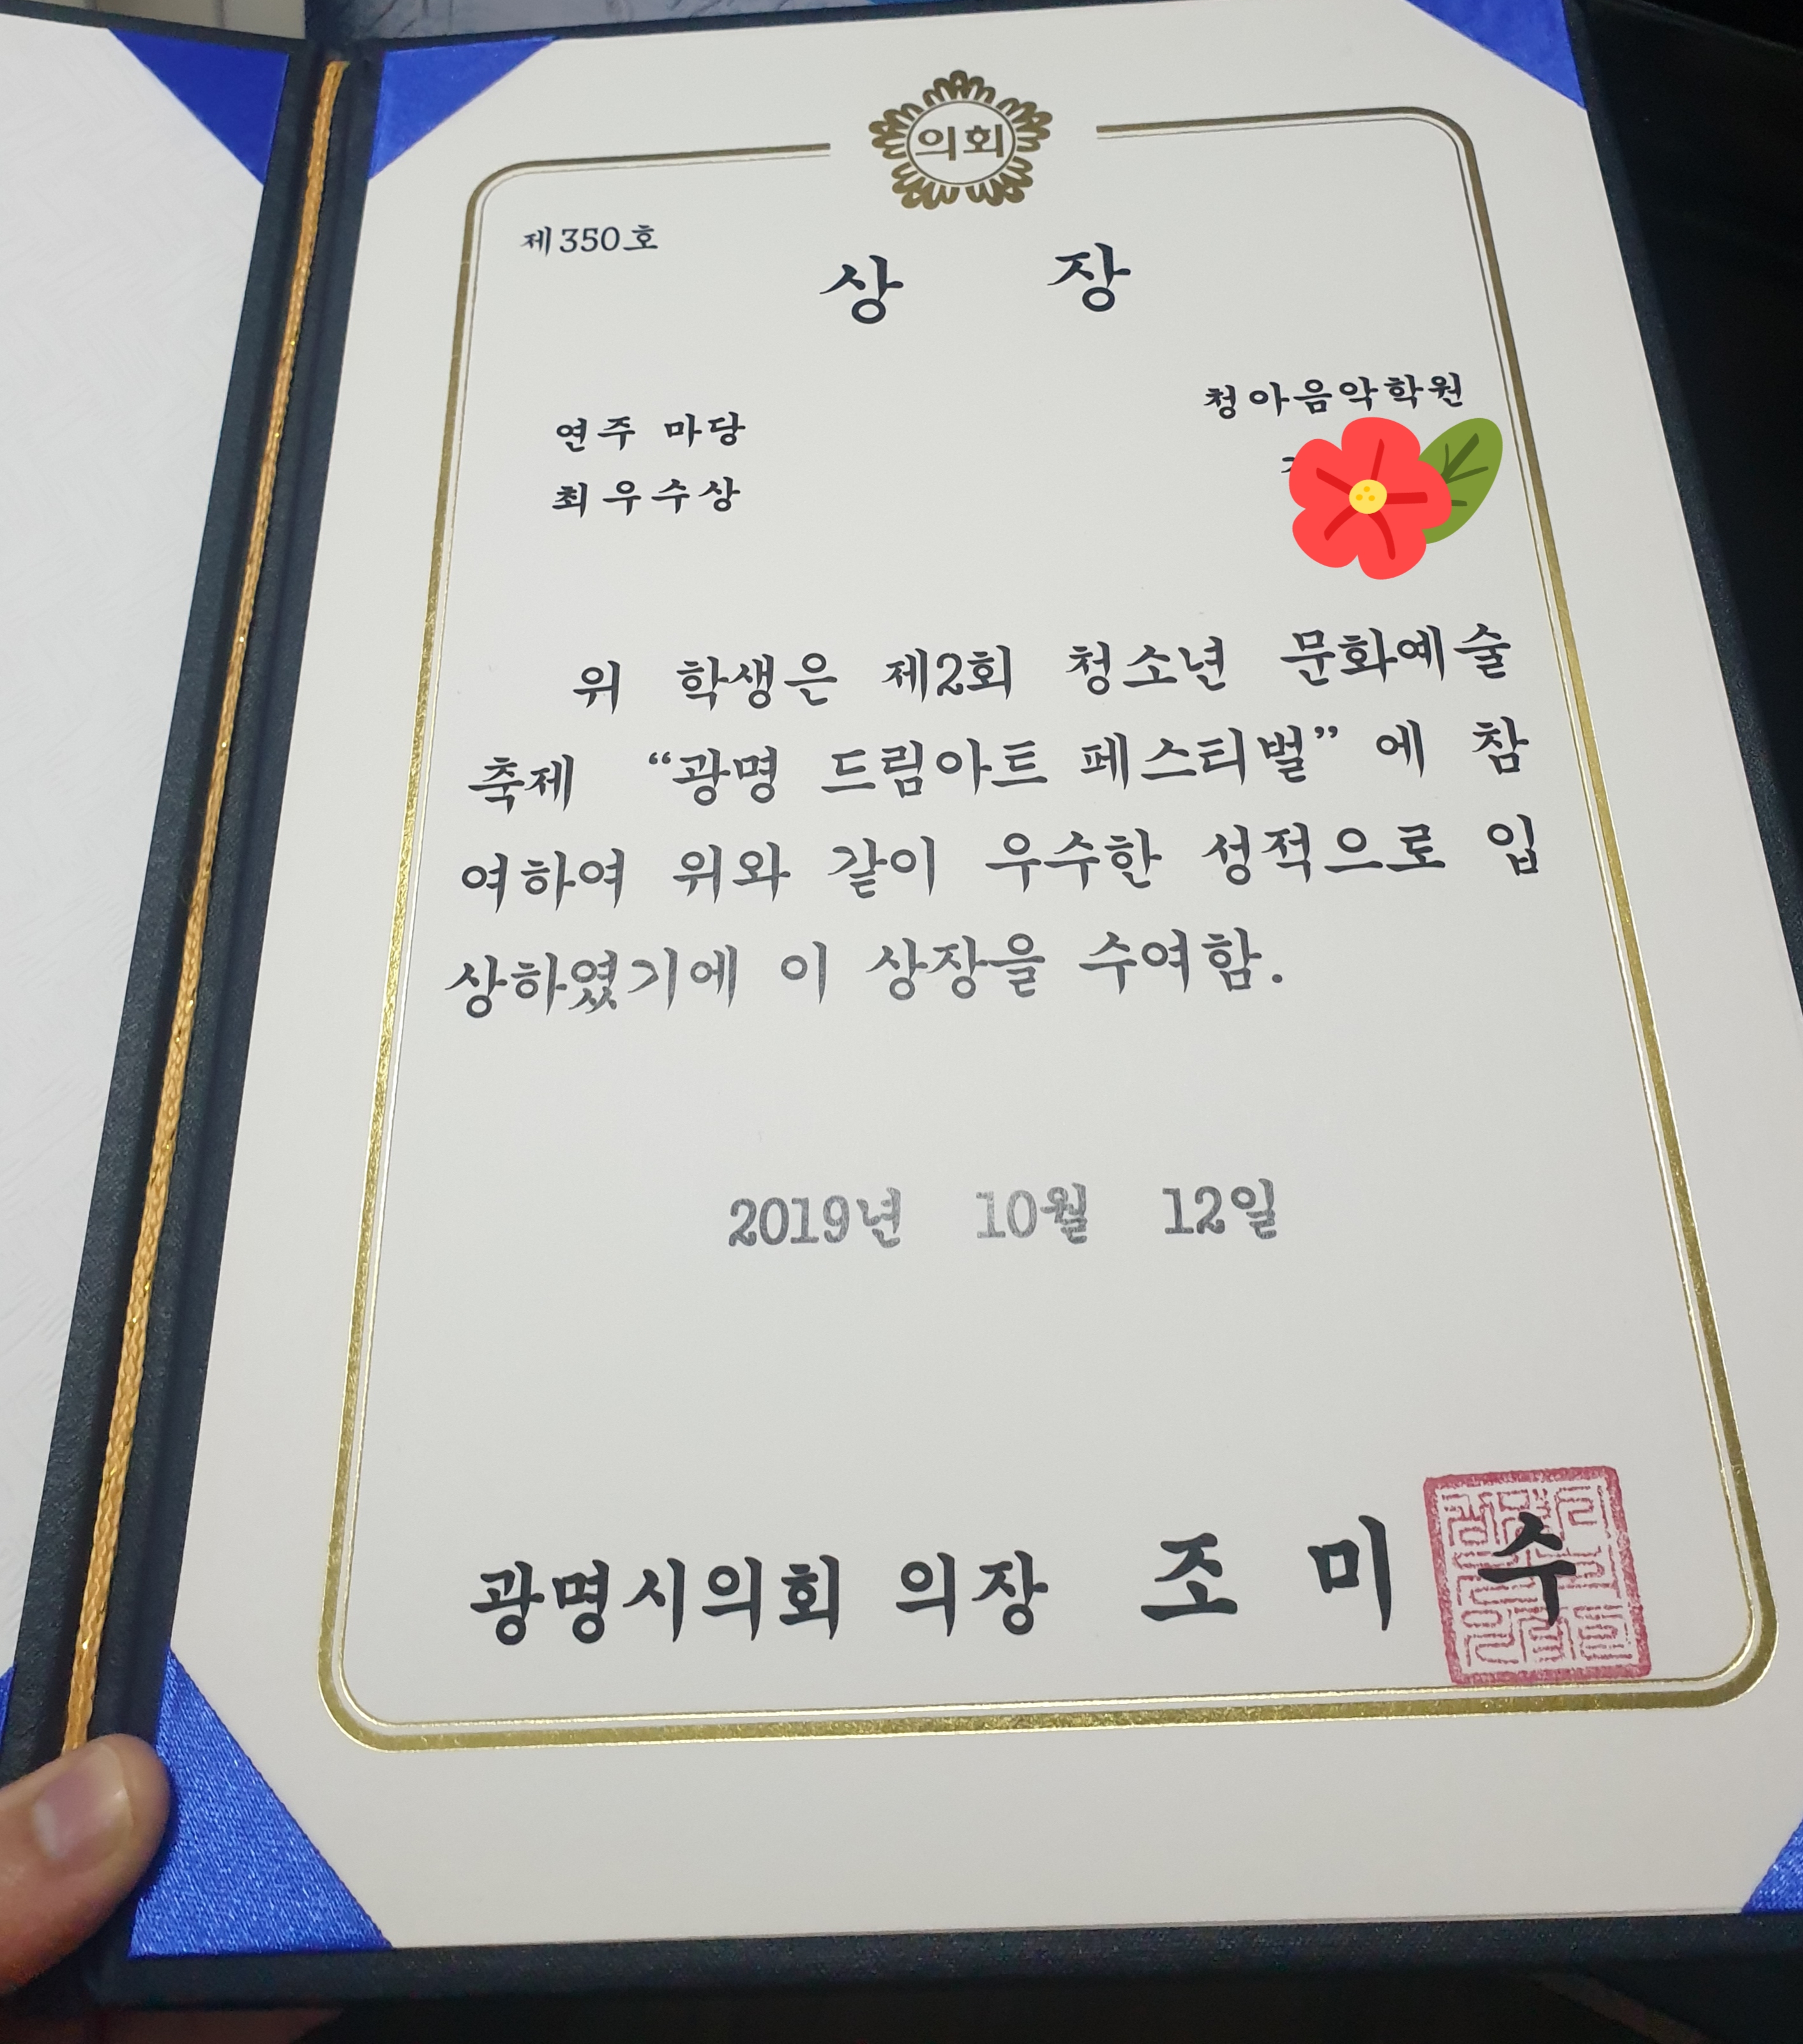 의회
제350호
상 장
청아음악학원
연주 마당
최우수상
위 학생은 제2회 청소년 문화예술
축제 “광명 드림아트 페스티벌” 에 참
여하여 위와 같이 우수한 성적으로 입
상하였기에 이 상장을 수여함.
2019년 10월 12일
광명시의회 의장 조 미 수